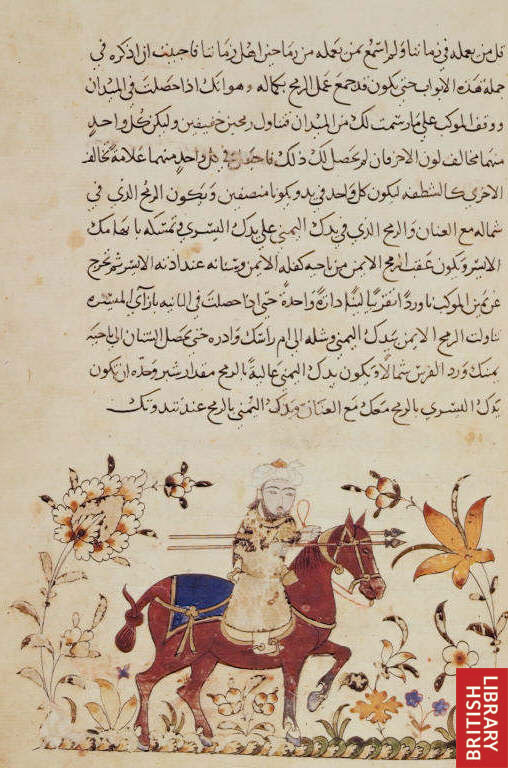 قل من يعمله في زماننا ولم اسمع بمن يعمله من رماحين اهل زماننا فاحببت ان اذكره في
جملة هذه الابواب حتى يكون قد جمع عمل الرمح بكماله وهو انك اذا حصلت في الميدان
ووقف الموكب على ما رسمت لك من الميدان فتناول رمحين خفيفين وليكن كل واحد
منهما مخالف لون الاخر فان لم يحصل لك ذلك فاجعل في كل واحد منهما علامة تخالف
الاخرى كالشطفه ليكون كل واحد في يد ويكونا منصفين ويكون الرمح الذي في
شماله مع العنان والرمح الذي في يدك اليمنى على يدك اليسرى تمسكه بابهامك
الايسر ويكون عقب الرمح الايمن من ناحيه كفله الايمن وسنانه عند اذنه الايسر ثم تخرج
عن يمين الموكب ناوردا دارة واحدة حتى اذا حصلت في الثانيه بازآي الميسره
تناولت الرمح الايمن بيدك اليمنى وشله الى ام راسك وادره حتى يحصل السنان الى ناحية
يمينك ورد الفرس شمالا ويكون يدك اليمنى عالية بالرمح مقدار شبر وحده ان تكون
يدك اليسرى بالرمح معك مع العنان ويدك اليمنى بالرمح عند
BRITISH
LIBRARY